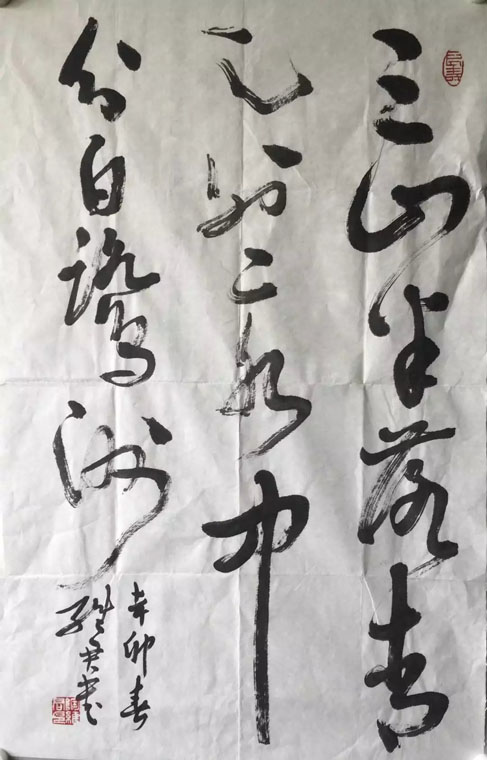 三山半落青
天外二水中
分白鹭洲
辛卯春
书